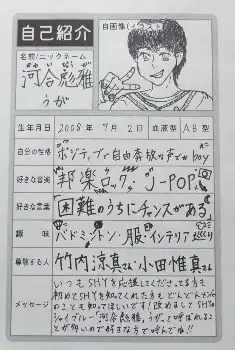 自己紹介
自画像(イラスト)
名前/ニックネーム
かわい ひゅうが
河合彪雅
うが
生年月日 2008年 7月 2日 血液型 AB型
自分の性格 ポジティブで自由奔放な声でか boy
好きな音楽 邦楽ロック、J-POP
好きな言葉 「困難のうちにチャンスがある」
趣味 バドミントン・服・インテリア
尊敬する人 竹内涼真さん 小田惟真さん
メッセージ
いつもSHYを応援してくださってる方も
初めてSHYを知ってくれた方もどんどんメンバー
のことも知ってほしいです!改めましてSHYの
シャイブルー河合彪雅、うがって呼ばれるこ
とが多いので好きな方で呼んでね!!